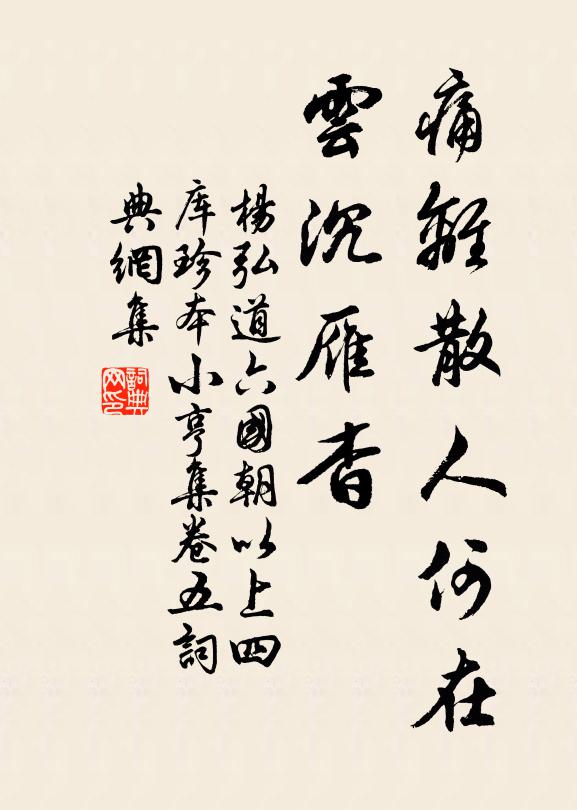 痛離散人何在
雲沉雁杳
楊弘道六國朝以上四
库珍本小亨集卷五詞
典網集
詞典網印